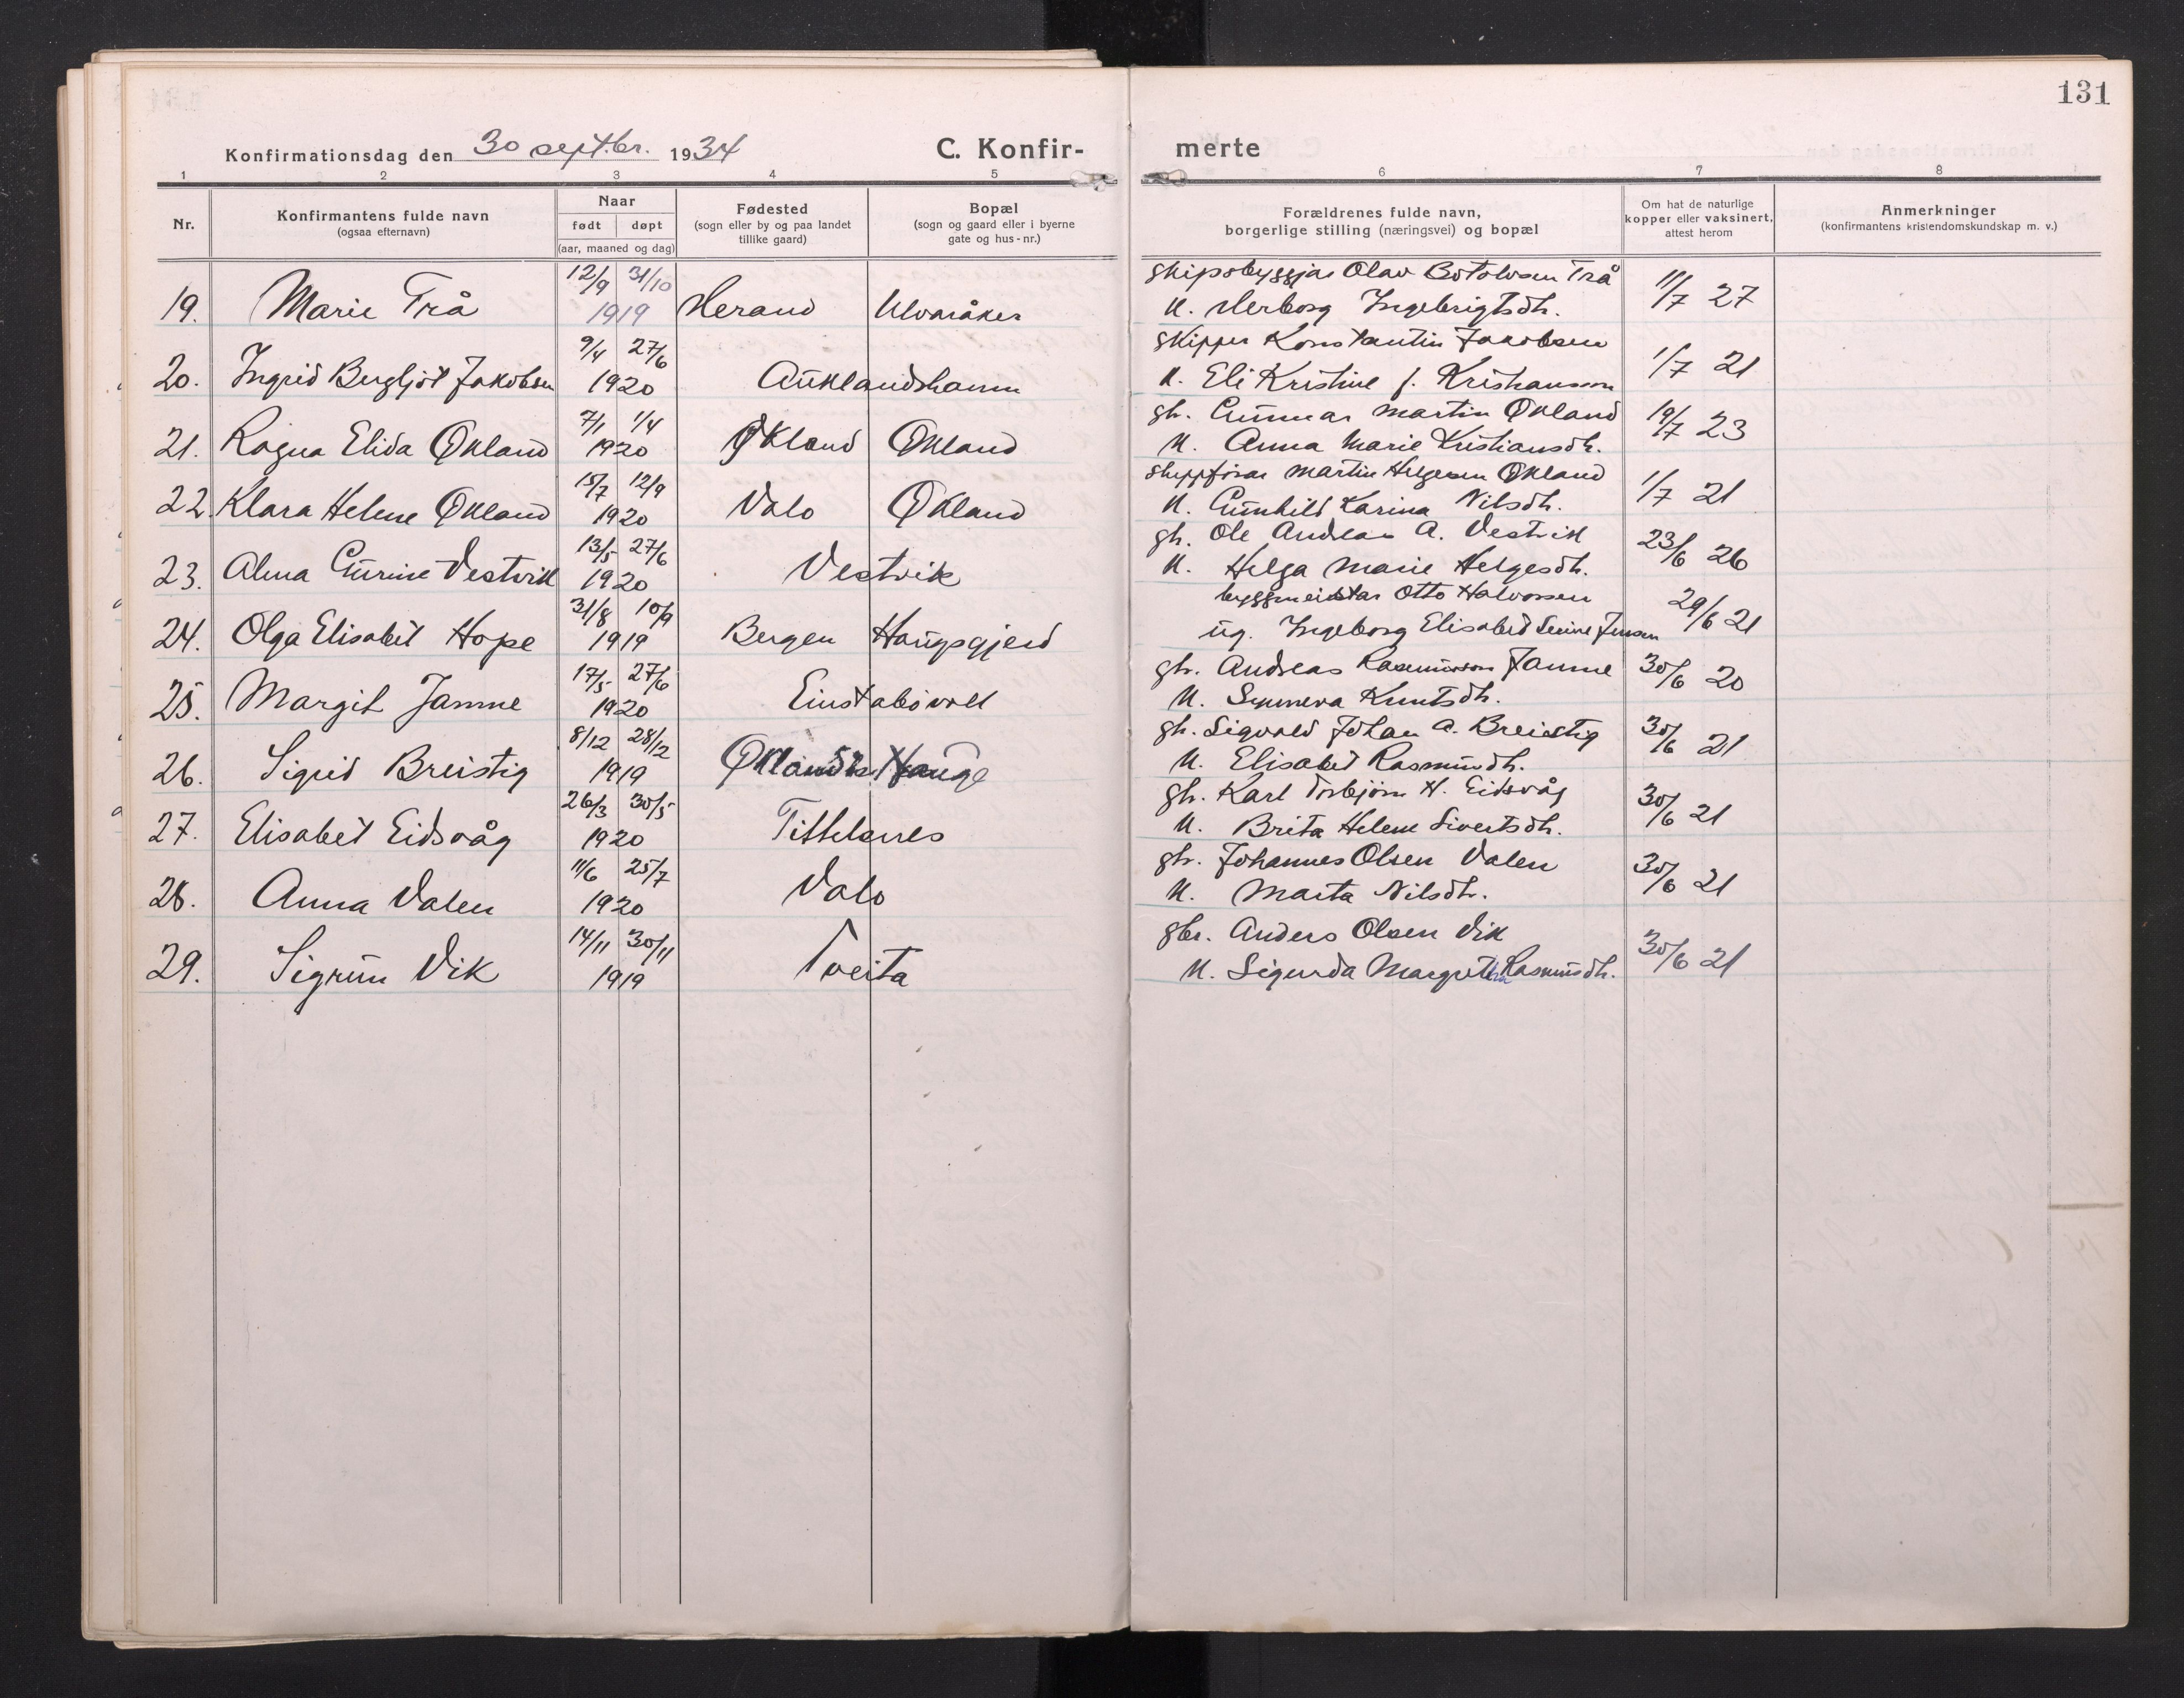 131
Konfirmationsdag den 30 septbr. 1934
C. Konfir-
merte
1 2 3 4 5 6 7 8
Nr.
Konfirmantens fulde navn
(ogsaa efternavn)
Naar
født døpt
(aar, maaned og dag)
Fødested
(sogn eller by og paa landet
tillike gaard)
Bopæl
(sogn og gaard eller i byerne
gate og hus-nr.)
Forældrenes fulde navn,
borgerlige stilling (næringsvei) og bopæl
Om hat de naturlige
kopper eller vaksinert,
attest herom
Anmerkninger
(konfirmantens kristendomskundskap m. v.)
12/9 31/10 skipsbyggjar Olav Botolvsen Trå
19. Marie Trå 1919 Herand Ulvaråker K. Herborg Ingebrigtsdtr. 11/7 27
9/4 27/6 skipper Konstantin Jakobsen
20. Ingrid Bergljot Jakobsen 1920 Auklandshamn K. Eli Kristine f. Kristianson 1/7 21
7/1 1/4 gbr. Gunnar Martin Økland
21. Ragna Elida Økland 1920 Økland Økland K. Anna Marie Kristiansdtr. 19/7 23
15/7 12/9 Martin Helgesen Økland
22. Klara Helene Økland 1920 Valo Økland K. Gunhild Karina Nilsdtr. 1/7 21
13/5 27/6 gbr. Ole Andreas A. Vestvik
23. Alma Gurine Vestvik 1920 Vestvik K. Helga Marie Helgesdtr. 23/6 26
31/8 10/9 byggmeistar Otto Halvorsen
24. Olga Elisabet Hope 1919 Bergen Haugsgjerd ug. Ingeborg Elisabed Jensen 29/6 21
17/5 27/6 gbr. Andreas Rasmusson Jamne
25. Margit Jamne 1920 Einstabøvoll K. Synneva Knutsdtr. 30/6 20
8/12 28/12 gbr. Sigvald Johan A. Breistig
26. Sigrid Breistig 1919 Hauge K. Elisabet Rasmusdtr. 30/6 21
26/3 30/5 gbr. Karl Torbjørn H. Eidsvåg
27. Elisabet Eidsvåg 1920 Tittelsnes K. Brita Helene Sivertsdtr. 30/6 21
11/6 25/7 gbr. Johannes Olsen Valen
28. Anna Valen 1920 Valo K. Marta Nilsdtr. 30/6 21
14/11 30/11 gbr. Anders Olsen Vik
29. Sigrun Vik 1919 Tveita K. Sigurda Margretha Rasmusdtr. 30/6 21